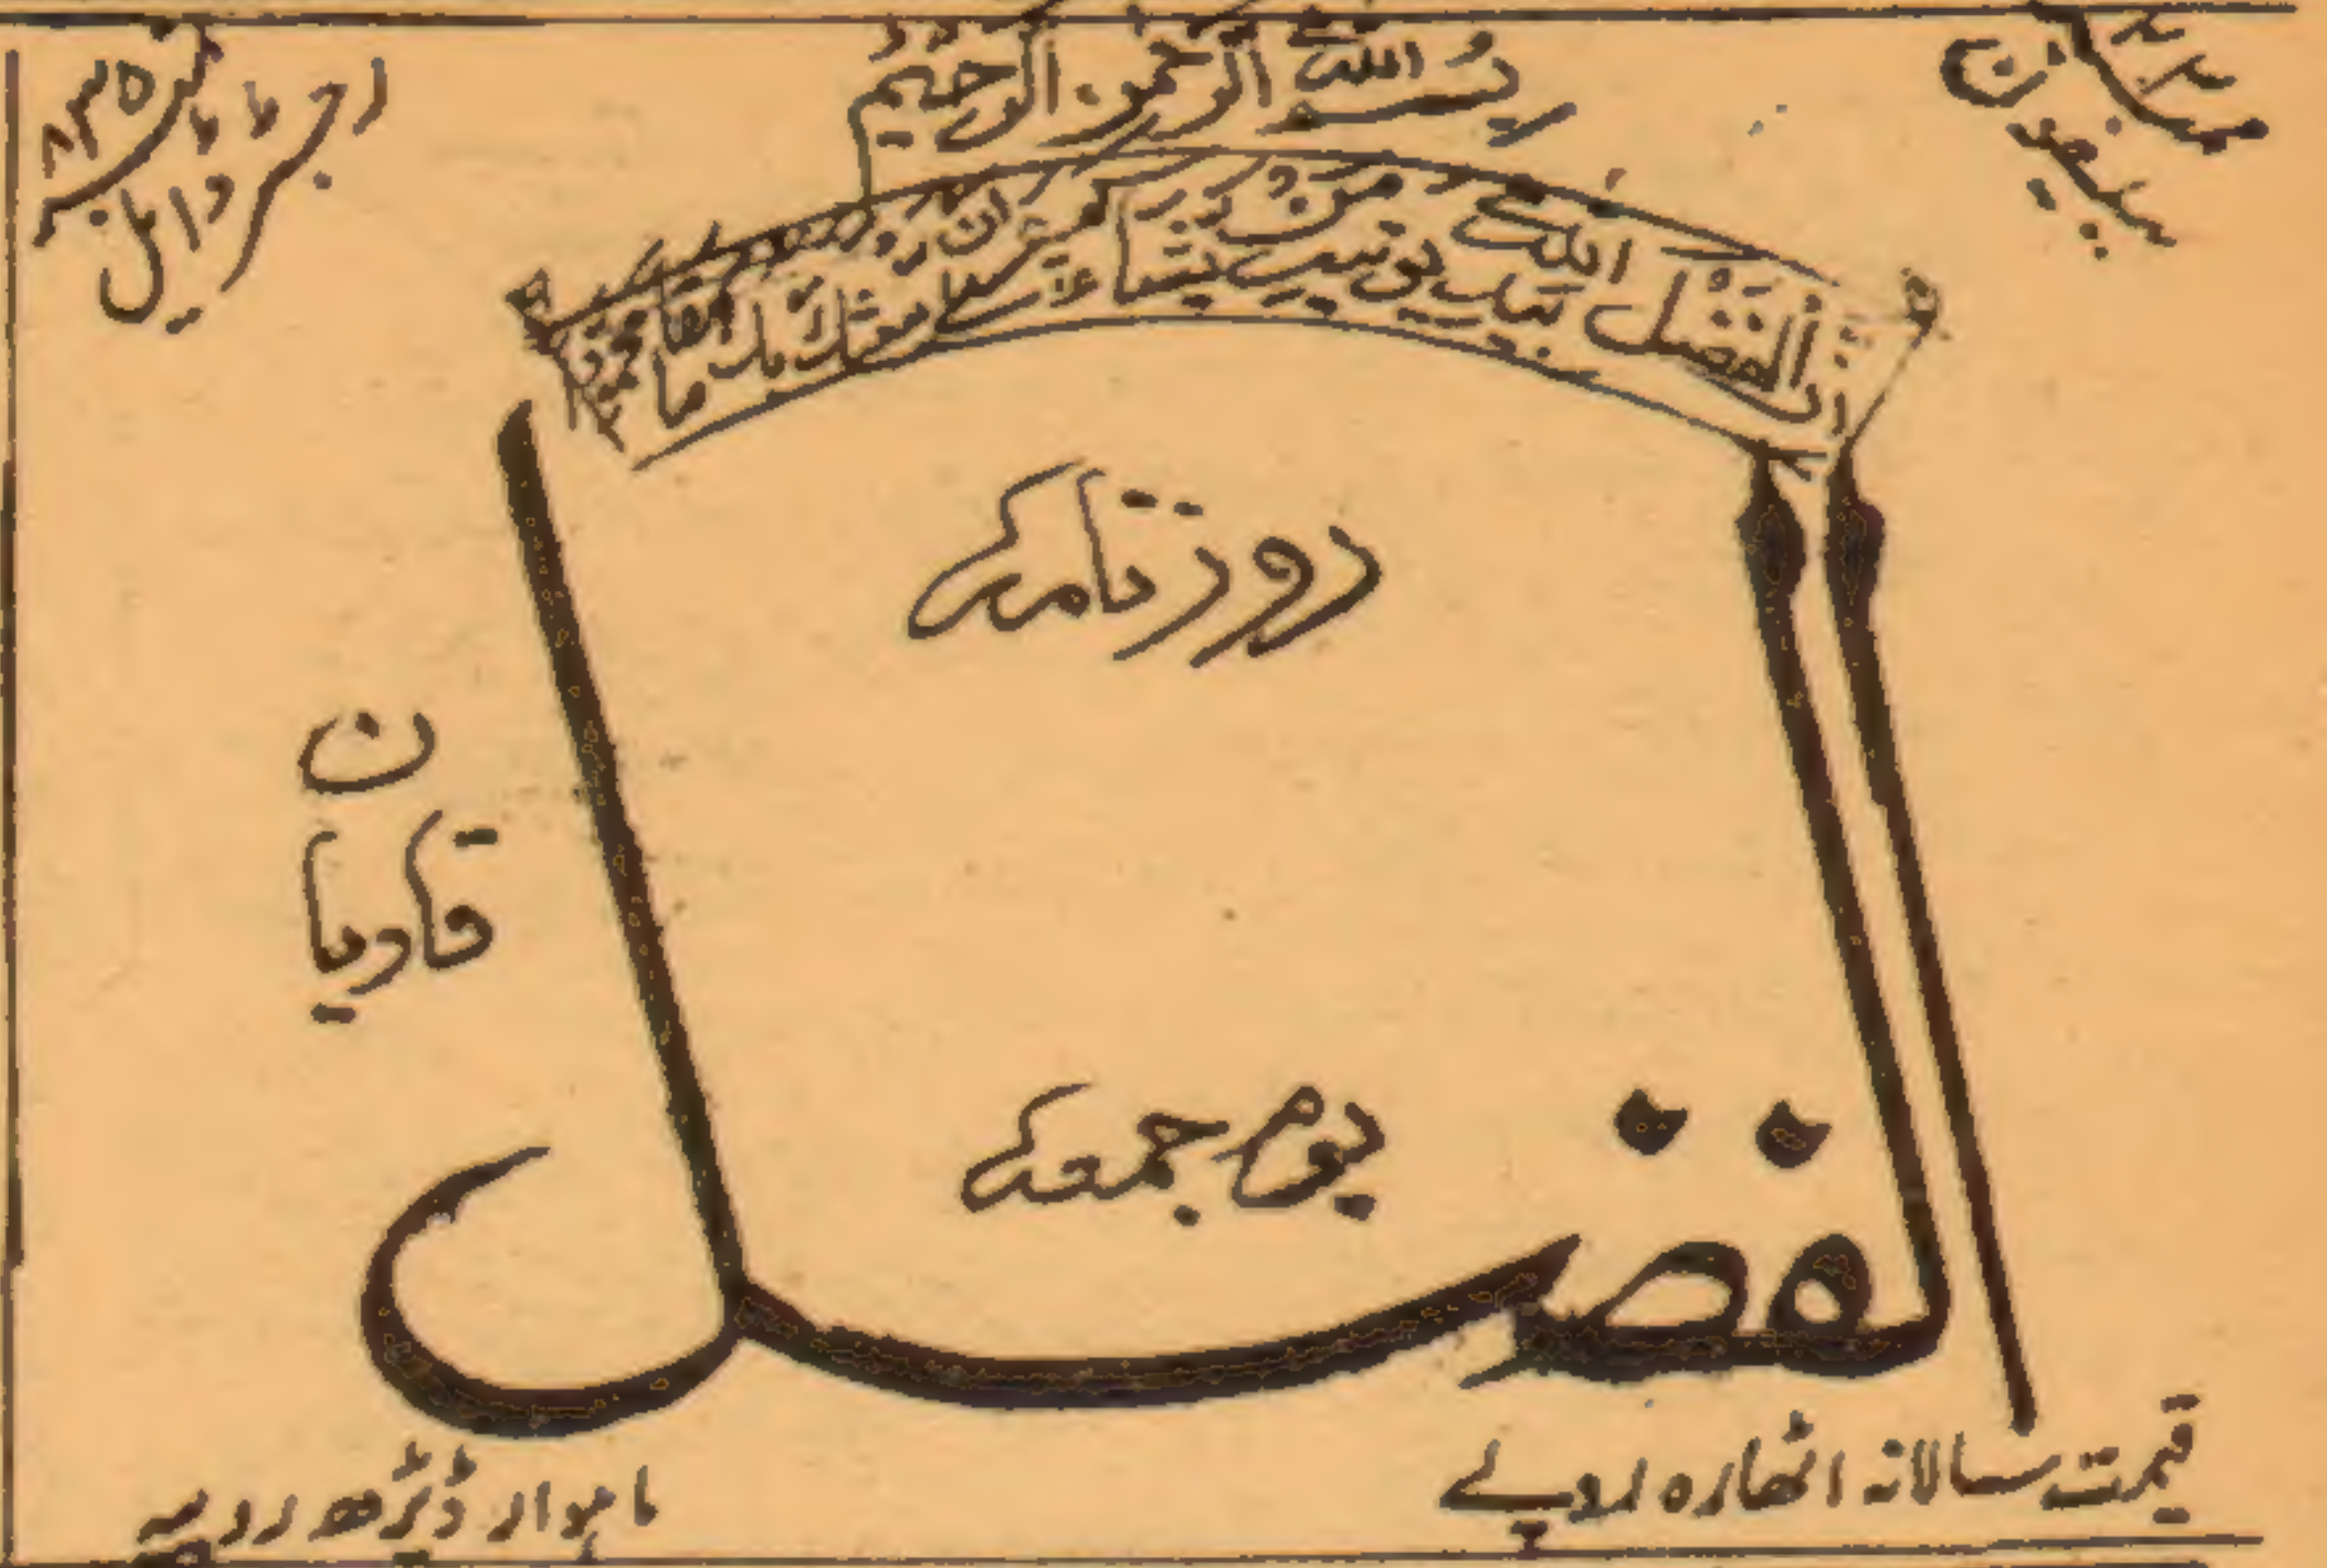 بِسْمِ اللہِ الرَّحْمٰنِ الرَّحِیْمِ
رجسٹرڈ ایل نمبر ۸۳۵
ٹیلیفون نمبر
اِنَّ الْفَضْلَ بِیَدِ اللہِ یُؤْتِیْہِ مَنْ یَّشَآءُ عَسٰی اَنْ یَّبْعَثَکَ رَبُّکَ مَقَامًا مَّحْمُوْدًا
روزنامہ
قادیان
الفضل
یوم جمعہ
قیمت سالانہ اٹھارہ روپے
ماہوار ڈیڑھ روپیہ